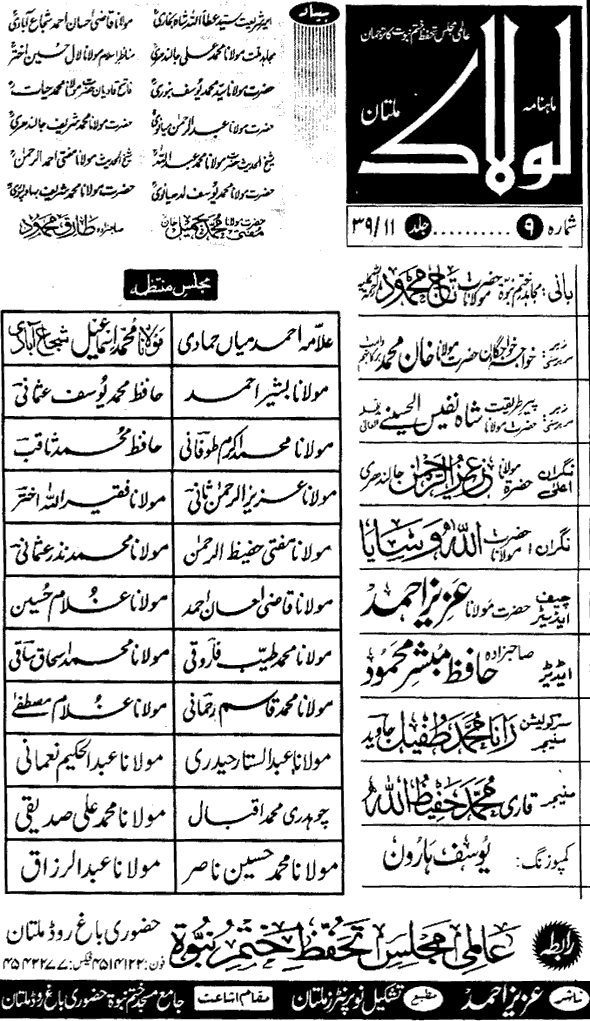 عالمی مجلس تحفظ ختم نبوت کا ترجمان
ماہنامہ
لولاک
ملتان
شمارہ ۹ .......... جلد ۳۹/۱۱
بیاد
امیر شریعت سید عطا اللہ شاہ بخاریؒ
مولانا قاضی احسان احمد شجاع آبادیؒ
مجاہد ملت مولانا محمد علی جالندھریؒ
مناظر اسلام مولانا لال حسین اخترؒ
حضرت مولانا سید محمد یوسف بنوریؒ
فاتح قادیان حضرت مولانا محمد حیاتؒ
حضرت مولانا عبدالرحمن میانویؒ
حضرت مولانا محمد شریف جالندھریؒ
شیخ الحدیث حضرت مولانا محمد عبداللہؒ
شیخ الحدیث مولانا مفتی احمد الرحمنؒ
حضرت مولانا محمد یوسف لدھیانویؒ
حضرت مولانا محمد شریف بہاولپوریؒ
حضرت مولانا مفتی محمد جمیل خان
صاحبزادہ طارق محمود
بانی: مجاہد ختم نبوۃ حضرت مولانا تاج محمود
زیر سرپرستی: خواجہ خواجگان حضرت مولانا خان محمد
زیر سرپرستی: پیر طریقت حضرت مولانا شاہ نفیس الحسینی
نگران اعلیٰ: حضرۃ مولانا عزیز الرحمن جالندھری
نگران: حضرت مولانا اللہ وسایا
چیف ایڈیٹر: حضرت مولانا عزیز احمد
ایڈیٹر: صاحبزادہ حافظ مبشر محمود
سرکولیشن منیجر: رانا محمد طفیل جاوید
منیجر: قاری محمد حفیظ اللہ
کمپوزنگ: یوسف ہارون
مجلس منتظمہ
علامہ احمد میاں حمادی
مولانا محمد اسماعیل شجاع آبادی
مولانا بشیر احمد
حافظ محمد یوسف عثمانی
مولانا محمد اکرم طوفانی
حافظ محمد ثاقب
مولانا عزیز الرحمن ثانی
مولانا فقیر اللہ اختر
مولانا مفتی حفیظ الرحمن
مولانا محمد نذر عثمانی
مولانا قاضی احسان احمد
مولانا غلام حسین
مولانا محمد طیب فاروقی
مولانا محمد اسحاق ساقی
مولانا محمد قاسم رحمانی
مولانا غلام مصطفےٰ
مولانا عبدالستار حیدری
مولانا عبدالحکیم نعمانی
چوہدری محمد اقبال
مولانا محمد علی صدیقی
مولانا محمد حسین ناصر
مولانا عبدالرزاق
رابطہ
عالمی مجلس تحفظ ختم نبوۃ
حضوری باغ روڈ ملتان
فون: 4514122 فیکس: 4542277
ناشر عزیز احمد مطبع تشکیل نو پرنٹرز ملتان مقام اشاعت جامع مسجد ختم نبوۃ حضوری باغ روڈ ملتان